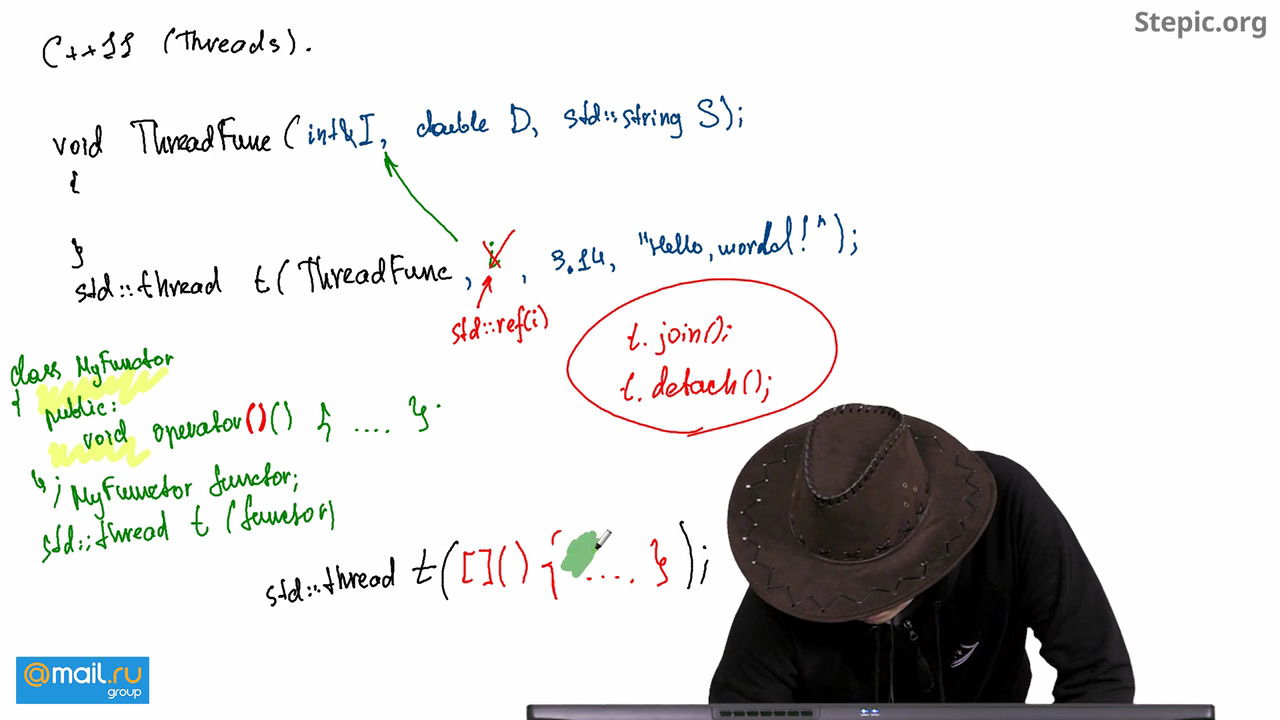 Stepic.org
C++11 (Threads).
void ThreadFunc (int& I, double D, std::string S);
{
}
std::thread t( ThreadFunc, i, 3.14, "Hello, world!");
std::ref(i)
t. join();
t. detach();
class MyFunctor
{ public:
void operator()() { .... }
}; MyFunctor functor;
std::thread t (functor)
std::thread t([]() { .... });
@mail.ru
group